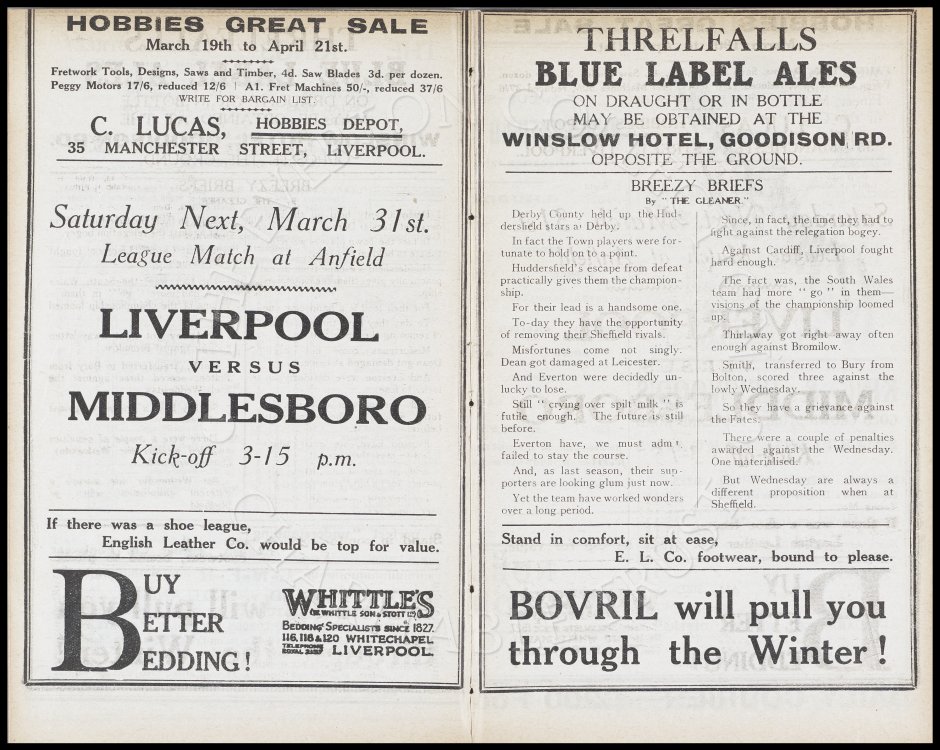 HOBBIES GREAT SALE
March 19th to April 21st.
Fretwork Tools, Designs, Saws and Timber, 4d. Saw Blades 3d. per dozen.
Peggy Motors 17/6, reduced 12/6 | A1. Fret Machines 50/-, reduced 37/6
WRITE FOR BARGAIN LIST.
C. LUCAS, HOBBIES DEPOT,
35 MANCHESTER STREET, LIVERPOOL.
Saturday Next, March 31st.
League Match at Anfield
LIVERPOOL
VERSUS
MIDDLESBORO
Kick-off 3-15 p.m.
If there was a shoe league,
English Leather Co. would be top for value.
BUY
BETTER
BEDDING!
WHITTLE'S
(W. WHITTLE SON & STOTT LTD)
BEDDING SPECIALISTS SINCE 1827.
116, 118 & 120 WHITECHAPEL
TELEPHONE ROYAL LIVERPOOL.
THRELFALLS
BLUE LABEL ALES
ON DRAUGHT OR IN BOTTLE
MAY BE OBTAINED AT THE
WINSLOW HOTEL, GOODISON RD.
OPPOSITE THE GROUND.
BREEZY BRIEFS
By "THE GLEANER."
Derby County held up the Hud-
dersfield stars at Derby.
In fact the Town players were for-
tunate to hold on to a point.
Huddersfield's escape from defeat
practically gives them the champion-
ship.
For their lead is a handsome one.
To-day they have the opportunity
of removing their Sheffield rivals.
Misfortunes come not singly.
Dean got damaged at Leicester.
And Everton were decidedly un-
lucky to lose.
Still "crying over spilt milk" is
futile enough. The future is still
before.
Everton have, we must admit,
failed to stay the course.
And, as last season, their sup-
porters are looking glum just now.
Yet the team have worked wonders
over a long period.
Since, in fact, the time they had to
fight against the relegation bogey.
Against Cardiff, Liverpool fought
hard enough.
The fact was, the South Wales
team had more "go" in them—
visions of the championship loomed
up.
Thirlaway got right away often
enough against Bromilow.
Smith, transferred to Bury from
Bolton, scored three against the
lowly Wednesday.
So they have a grievance against
the Fates.
There were a couple of penalties
awarded against the Wednesday.
One materialised.
But Wednesday are always a
different proposition when at
Sheffield.
Stand in comfort, sit at ease,
E. L. Co. footwear, bound to please.
BOVRIL will pull you
through the Winter!